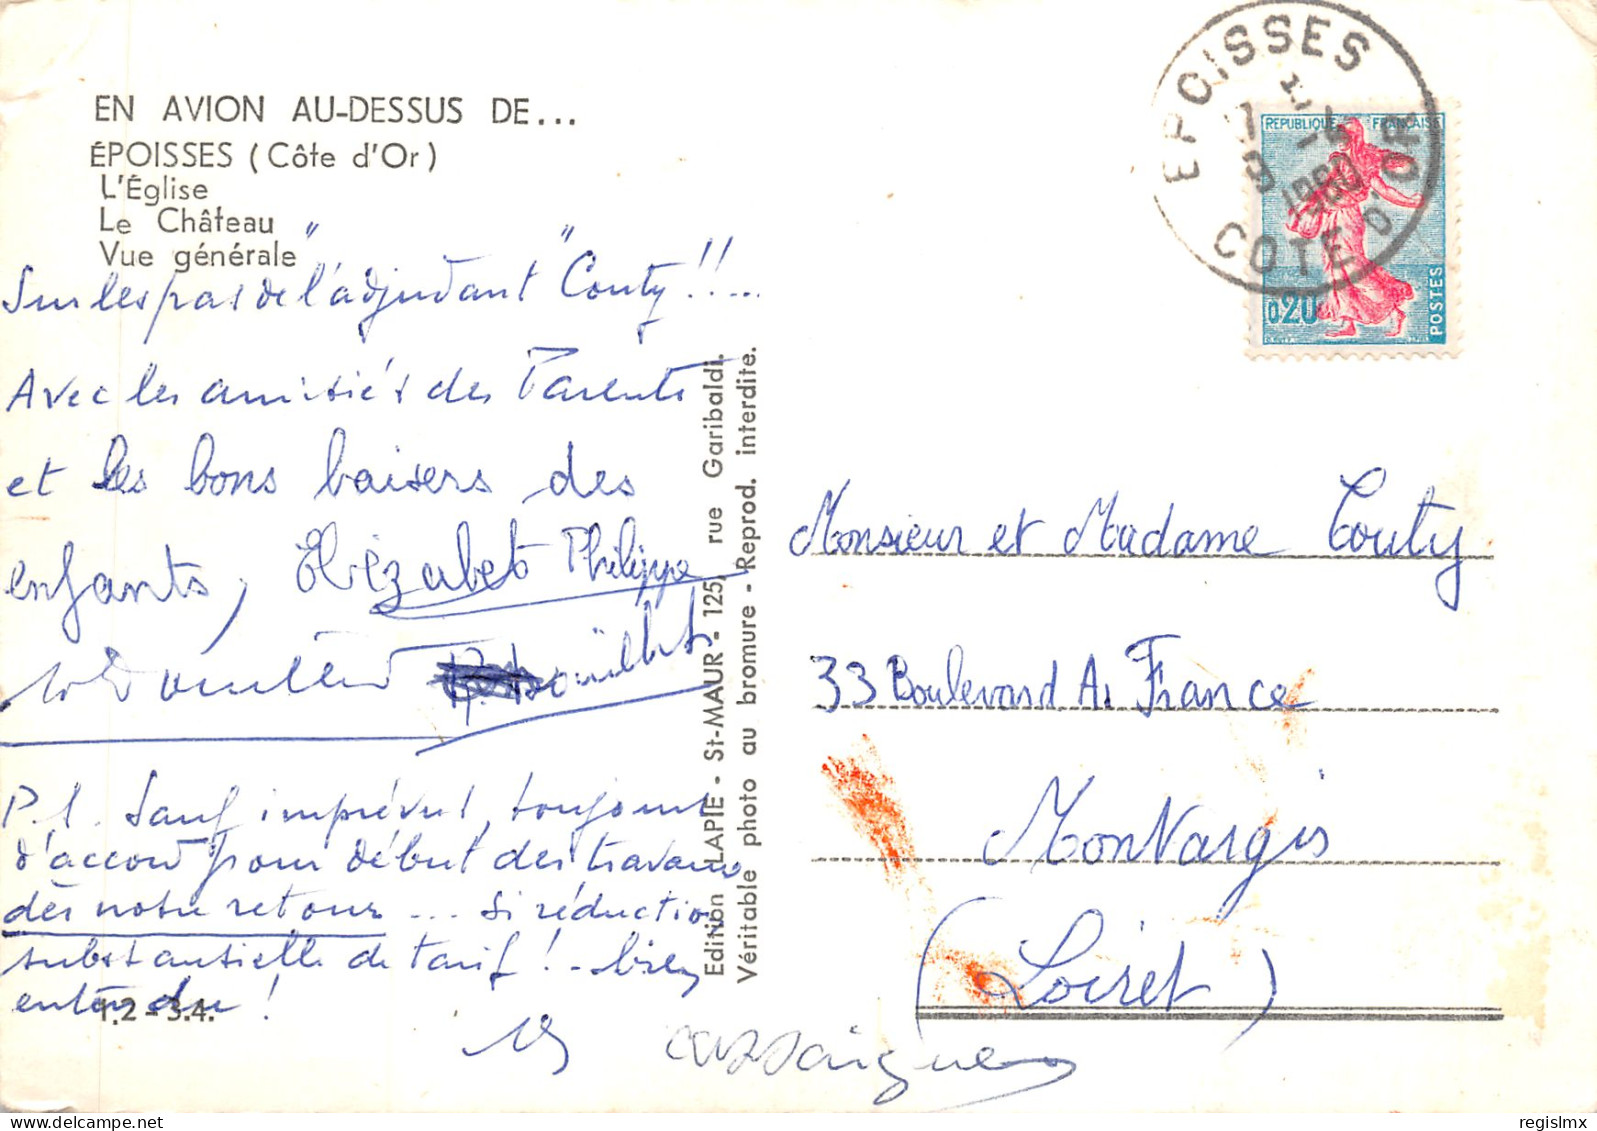 EN AVION AU-DESSUS DE...
ÉPOISSES (Côte d'Or)
L'Église
Le Château
Vue générale
Sur les pas de l'"adjudant" Couty !! ...
Avec les amitiés des Parents
et les bons baisers des
enfants, Elizabeth Philippe
P.S. Sauf imprévus, toujours
d'accord pour début des travaux
dès notre retour ... si réduction
substantielle de tarif ! - bien
entendu !
1.2 - 3.4.
Edition LAPIE - St-MAUR - 125, rue Garibaldi.
Véritable photo au bromure - Reprod. interdite.
EPOISSES
COTE D'OR
1960
REPUBLIQUE FRANÇAISE
0,20
POSTES
Monsieur et Madame Couty
33 Boulevard A. France
Montargis
(Loiret)
regislmx